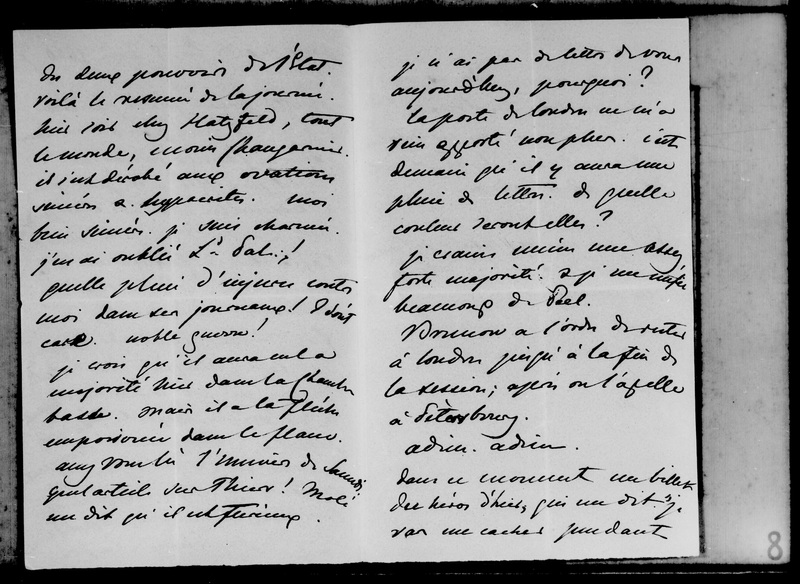 des deux pouvoirs de l'Etat.
voilà le resumé de la journée.
hier soir chez Hatzfeld, tout
le monde, moins Changarnier.
il s'est dérobé aux ovations
sincères & hypocrites. moi
bien sincère. je suis charmée.
j'ai oublié Ld Pal..!
quelle pluie d'injures contre
moi dans ses journaux! I don't
care. noble guerre!
je crois qu'il aura eu la
majorité hier dans la Chambre
basse. mais il a la flèche
empoisonnée dans le flanc.
avez vous lu l'Univers de Samedi
quel article sur Thiers! Molé
me dit qu'il est furieux.
je n'ai pas de lettre de vous
aujourd'huy, pourquoi?
la poste de londres ne m'a
rien apporté non plus. c'est
demain qu'il y aura une
pluie de lettres. de quelle
couleur seront elles?
je crains même une assez
forte majorité. & je me méfie
beaucoup de Peel.
Brunnow a l'ordre de rester
à londres jusqu'à la fin de
la session; après on l'apelle
à Petersbourg.
adieu. adieu.
dans ce moment un billet
des héros d'hier, qui me dit "je
vais me cacher pendant
8